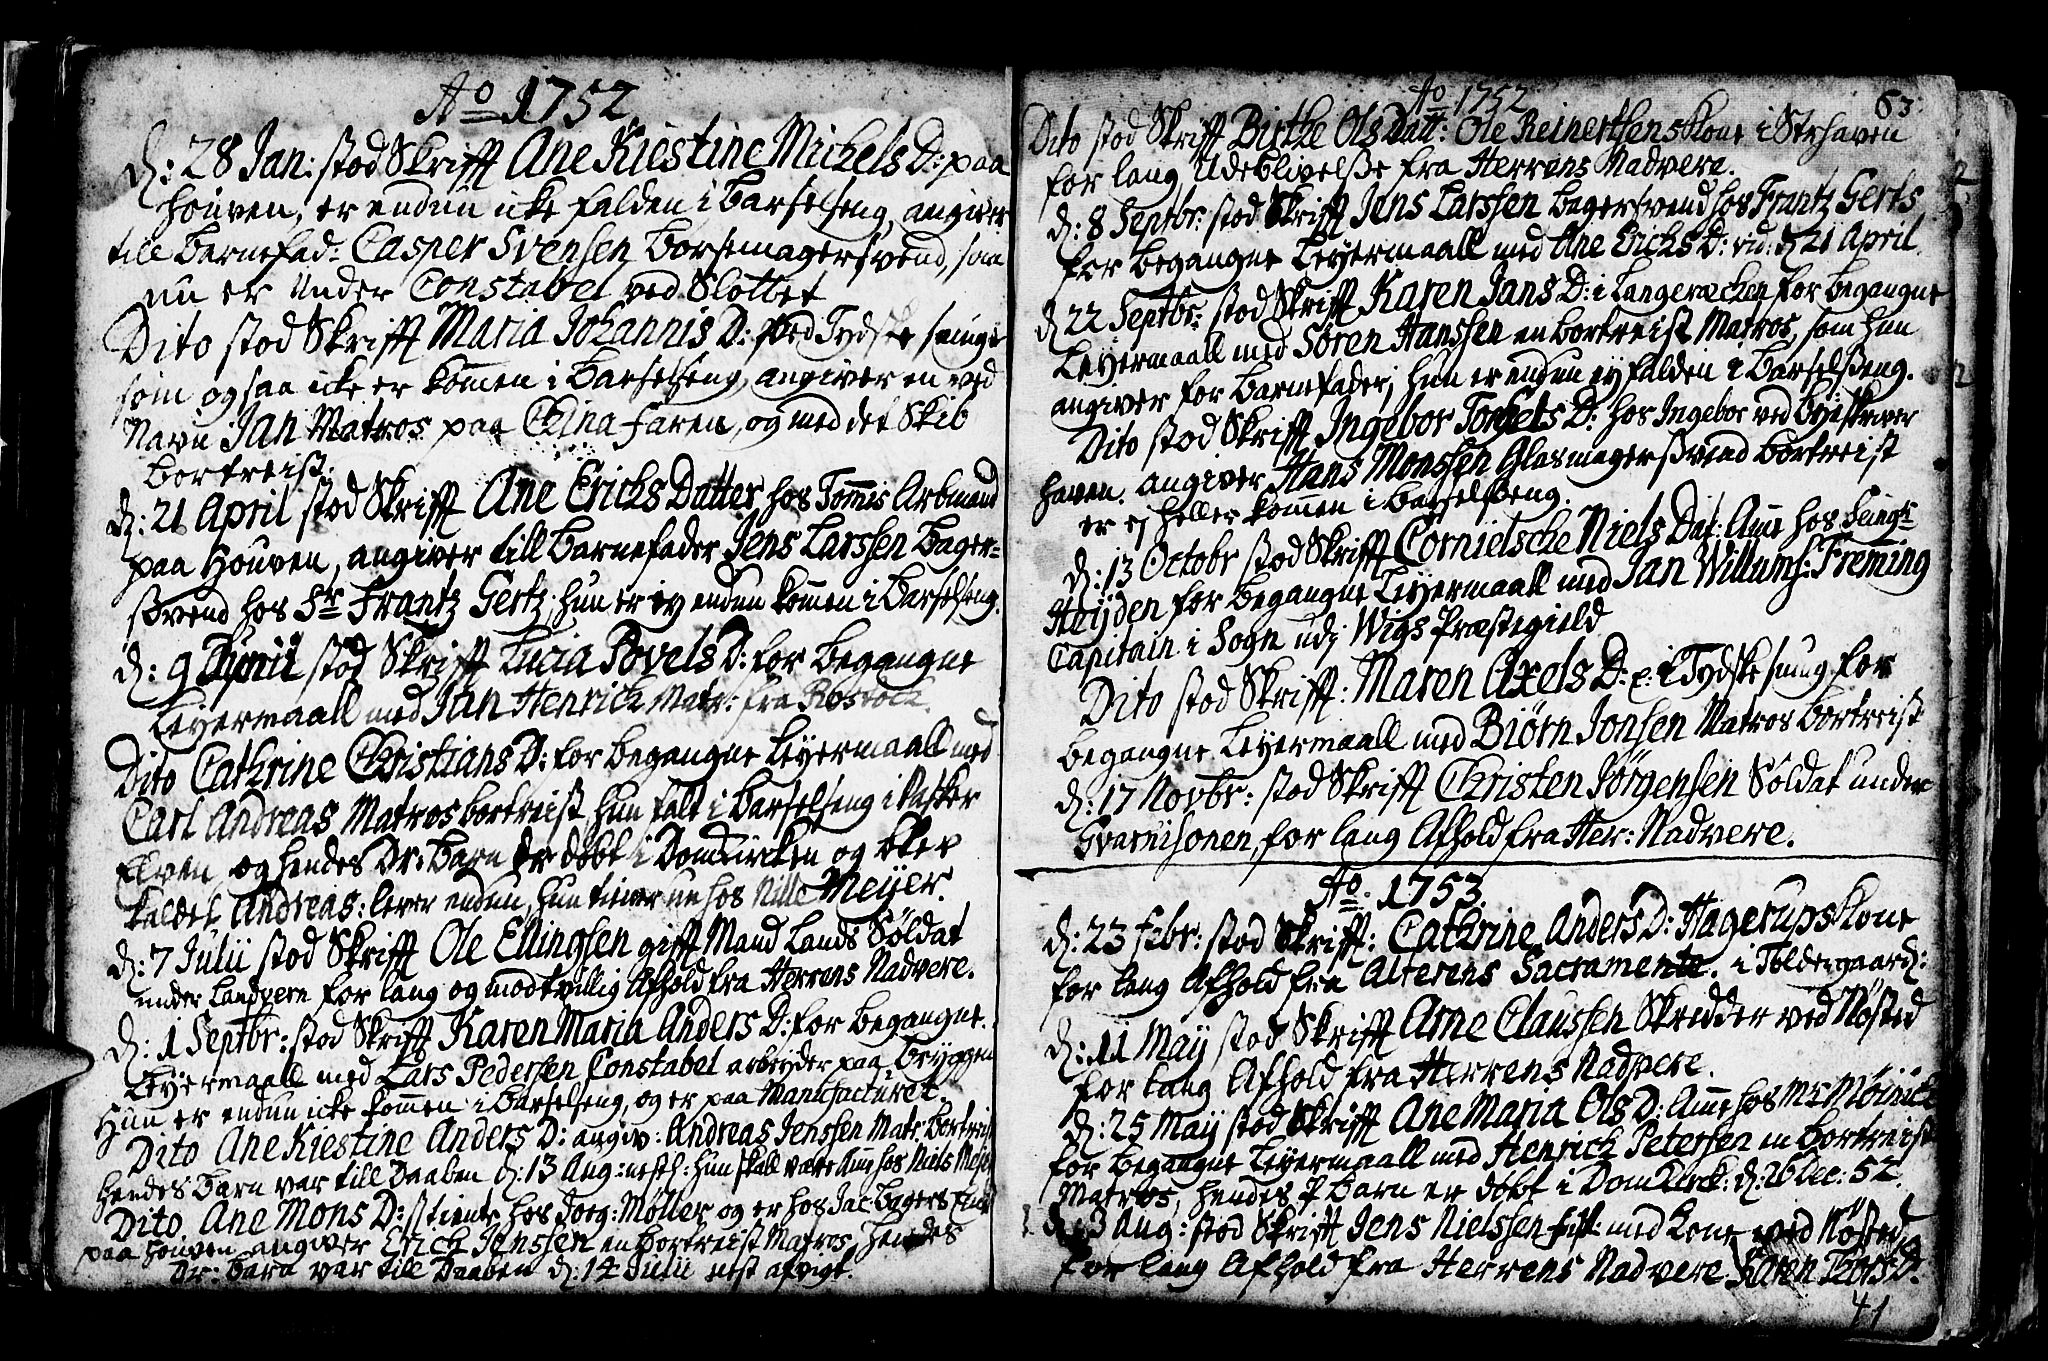 Ao 1752
d: 28 Jan: stod Skrifft Ane Kiestine Michels D: paa
Houven, er endnu icke falden i Barselseng, angiver
till Barnefad: Casper Svensen Borsemagersvend, saa
nu er Under Constabel ved Slottet
Dito stod Skrifft Maria Johannis D: ved Tydske
som og saa icke er kommen i Barselseng, angiver en ved
Navn Jan Matros paa China faren, og med det Skib
bortreist.
d: 21 April stod Skrifft Ane Erichs Datter hos Tommis Arbmand
paa Houven, angiver till Barnefader Jens Larssen Bager-
svend hos Sr Frantz Gertz, hun er ey endnu kommen i Barselseng.
d: 9 Junii stod Skrifft Lucia Povels D: for begangne
Leyermaall med Jan Henrich Matr: fra Rostock.
Dito Cathrine Christians D: for begangne Leyermaall med
Carl Andreas Matros bortreist, hun falt i Barselseng i Vasker
Elven, og hendes Dr: Barn er døbt i Domkircken og blev
kaldet Andreas: lever endnu, hun tiener nu hos Nille Meyer.
d: 7 Julii stod Skrifft Ole Ellingsen gifft Mand Lands Soldat
under Landvern for lang og modtvillig Afhold fra Herrens Nadvere.
d: 1 Septbr: stod Skrifft Karen Maria Anders D: for begangne
Leyermaall med Lars Pedersen Constabel arbeyder paa Bryggen
Hun er endnu icke kommen i Barselseng, og er paa Manufacturet.
Dito Ane Kiestine Anders D: angiv: Andreas Jenssen Matr: bortreist
hendes Barn var till Daaben d: 13 Aug: nestl: hun skall være Amme hos Niels
Dito Ane Mons D: tiente hos Jorg: Møller og er hos Jac Bagers
paa Houven, angiver Erich Jenssen en bortreist Matros, hendes
Dr: Barn var till Daaben d: 14 Julii nest afvigt.
Ao 1752
63
Dito stod Skrifft Birthe Ols Datt: Ole Reinertsens Kone i Strhaven
for lang Udeblivelse fra Herrens Nadvere.
d: 8 Septbr: stod Skrifft Jens Larssen Bagersvend hos Frantz Gerts
for begangne Leyermaall med Ane Erichs D: vid: d 21 April
d 22 Septbr: stod Skrifft Karen Jans D: i Langeræcken for begangne
Leyermaall med Søren Hanssen en bortreist Matros, som hun
angiver for Barnefader, hun er endnu ey falden i Barselseng.
Dito stod Skrifft Ingebor Torgels D: hos Ingebor ved Byeskriver
haven. angiver Hans Monssen Glasmagersvend bortreist
er ej heller kommen i Barselseng.
d: 13 Octobr stod Skrifft Cornielsche Niels Dat: Amme hos
Heyden for begangne Leyermaall med Jan Willums: Fleming
Capitain i Sogn udj Wigs Præstegield
Dito stod Skrifft: Maren Axels D: i Tydske for
begangne Leyermaall med Biørn Jonsen Matros bortreist
d: 17 Novbr: stod Skrifft Christen Jørgensen Soldat under
Gvarnisonen, for lang Afhold fra Her: Nadvere.
Ao. 1753
d: 23 Febr: stod Skrifft: Cathrine Anders D: Hagerups Kone
for lang Afhold fra Alterens Sacramente. i Toldengaard:
d: 11 Maij stod Skrifft Arne Claussen Skredder ved Nøsted
for lang Afhold fra Herrens Nadvere.
d: 25 Maij stod Skrifft Ane Maria Ols D: Amme hos Mr
for begangne Leyermaall med Henrich Petersen en bortreist
Matros, hendes Barn er døbt i Domkirck: d: 26 Dec: 52.
d: 3 Aug: stod Skrifft Jens Nielssen med Kone ved Nøsted
for lang Afhold fra Herrens Nadvere. Karen Thors D.
41